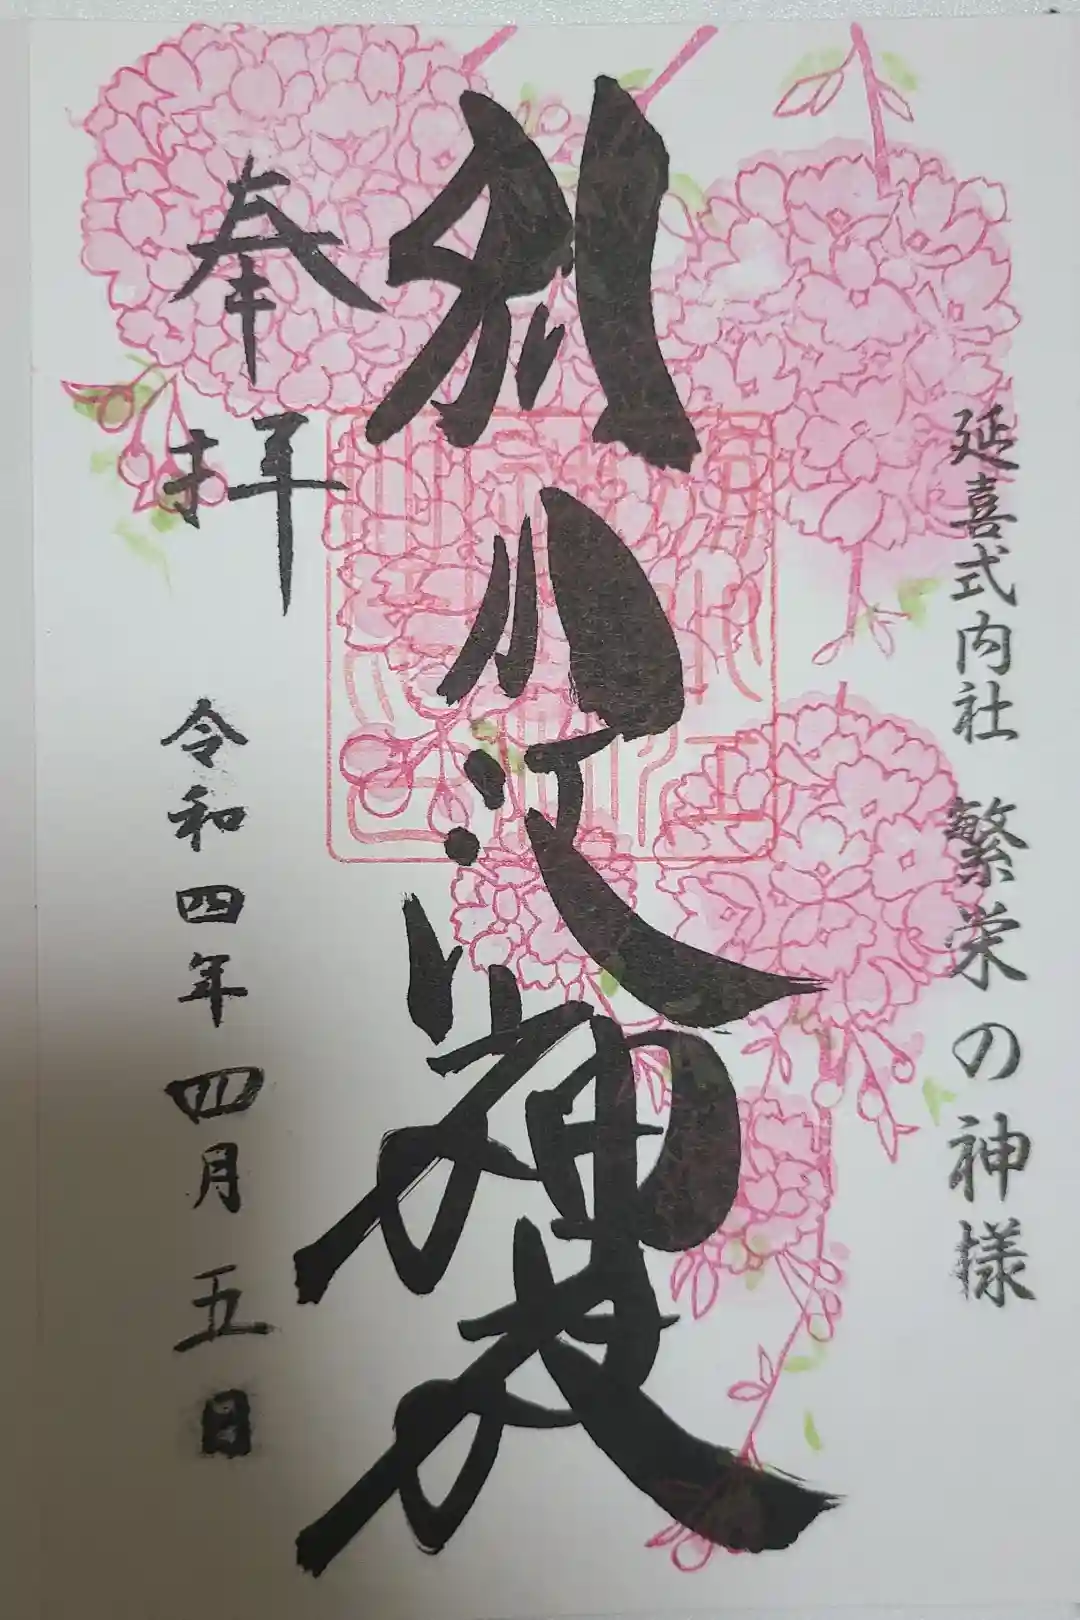 延喜式内社 繁栄の神様
別小江神社
奉拝 令和四年四月五日